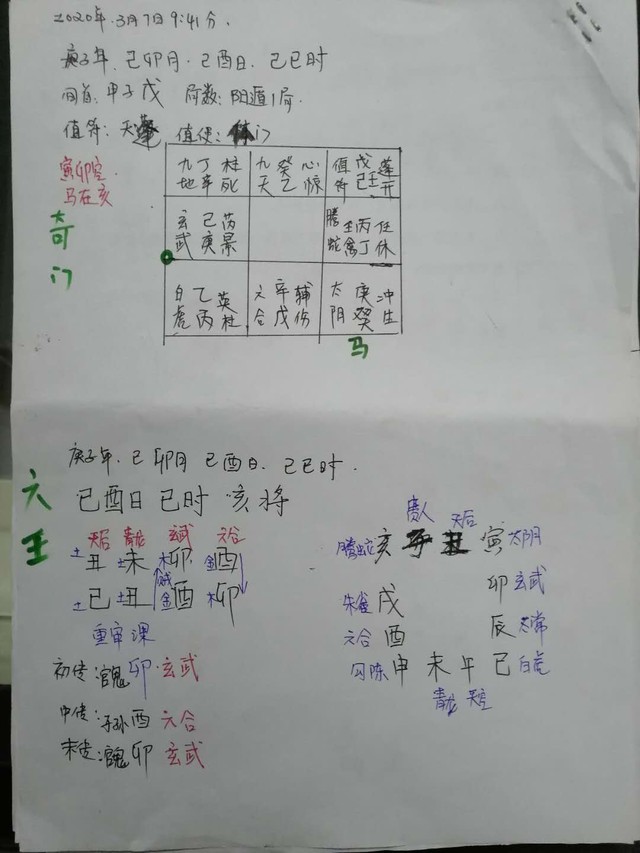 2020年.3月7日9:41分.
庚子年.己卯月.己酉日.己巳时
旬首:甲子戊 局数:阳遁1局.
值符:天蓬 值使:休门
寅卯空.
马在亥
奇门
九地 丁辛 柱死
九天 癸乙 心惊
值符 戊己壬 蓬开
玄武 己庚 芮景
腾蛇 壬禽 丙丁 任休
白虎 乙丙 英杜
六合 辛戊 辅伤
太阴 庚癸 冲生
马
庚子年.己卯月 己酉日.己巳时.
六壬
己酉日 巳时 亥将
天后 青龙 玄武 六合
土丑 土未 木卯 金酉
土己 土丑 金酉 木卯
重审课
初传:官鬼 卯·玄武
中传:子孙 酉 六合
末传:官鬼 卯 玄武
贵人 天后
腾蛇 亥 子 丑 寅 太阴
卯 玄武
朱雀 戌
辰 太常
六合 酉
勾陈 申 未 午 巳 白虎
青龙 天空